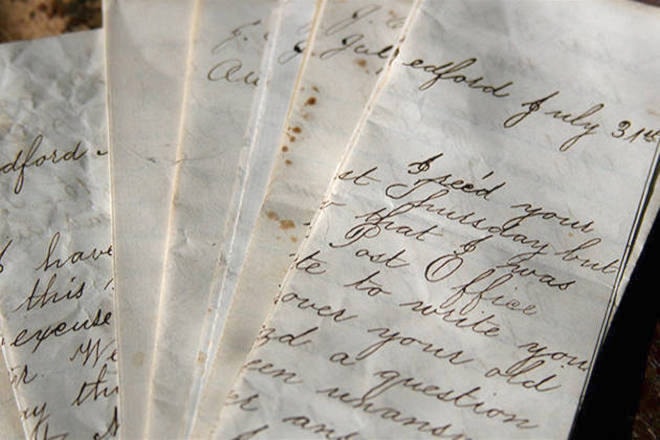 dford
I have
this
excuse
r. We
y th
J.
Au
J.
J. Jul
edford July 31st
I rec'd your
st Thursday but
that I was
Post Office
te to write you
over your old
d a question
een unansw
er an